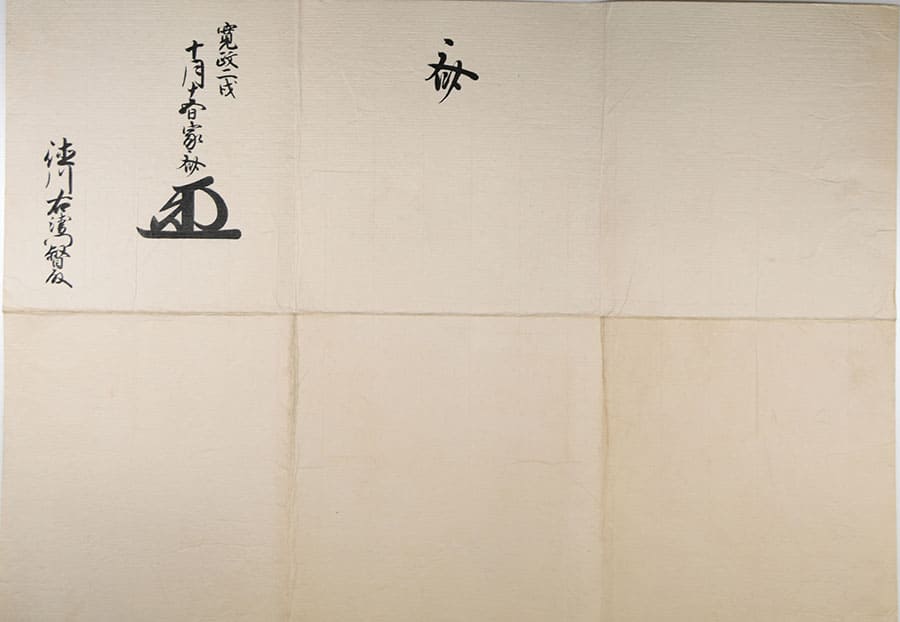 斉
寛政二戌
十月十五日家斉
徳川右衛門督殿